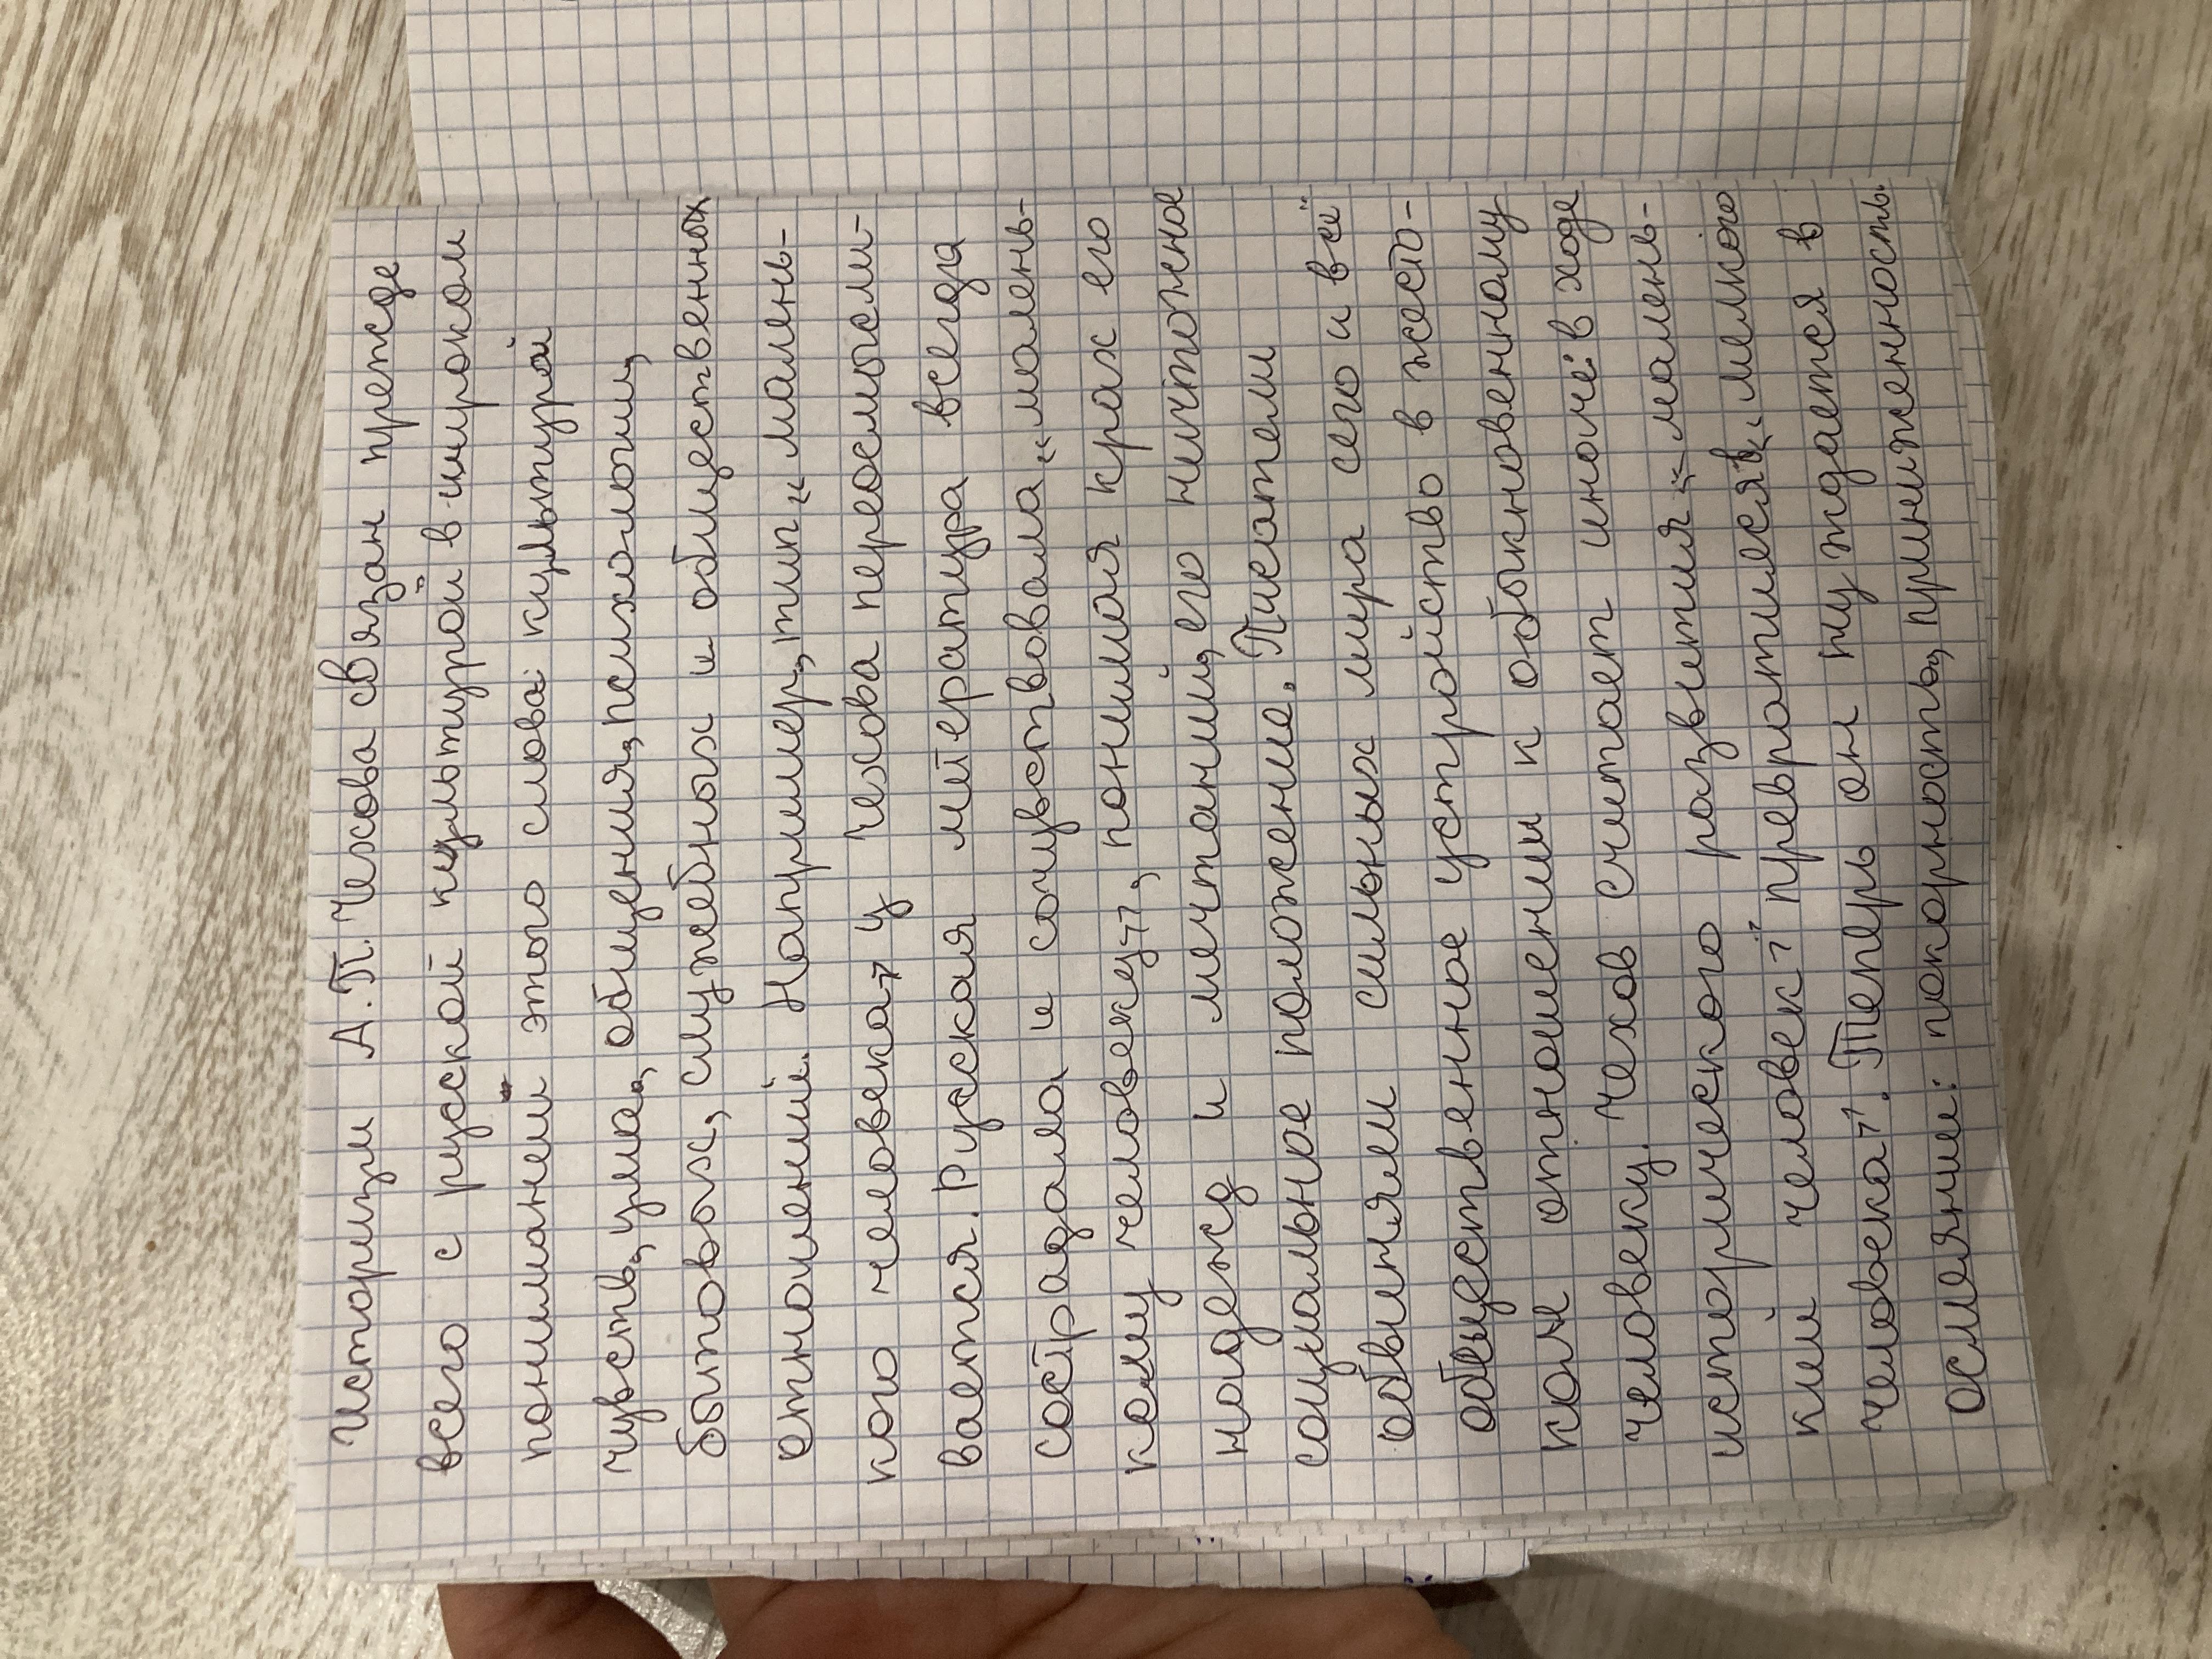 Историзм А.П. Чехова связан прежде
всего с русской культурой в широком
понимании этого слова: культурой
чувств, ума, общения, психологии,
бытовых, служебных и общественных
отношений. Например, тип „малень-
кого человека" у Чехова переосмысли-
вается. Русская литература всегда
сострадала и сочувствовала „малень-
кому человеку", понимая крах его
надежд и мечтаний, его ничтожное
социальное положение. Писатели
обвиняли сильных мира сего и всё
общественное устройство в жесто-
ком отношении к обыкновенному
человеку. Чехов считает иначе: в ходе
исторического развития „малень-
кий человек" превратился в „мелкого
человека". Теперь он нуждается в
осмеянии: покорность, приниженность